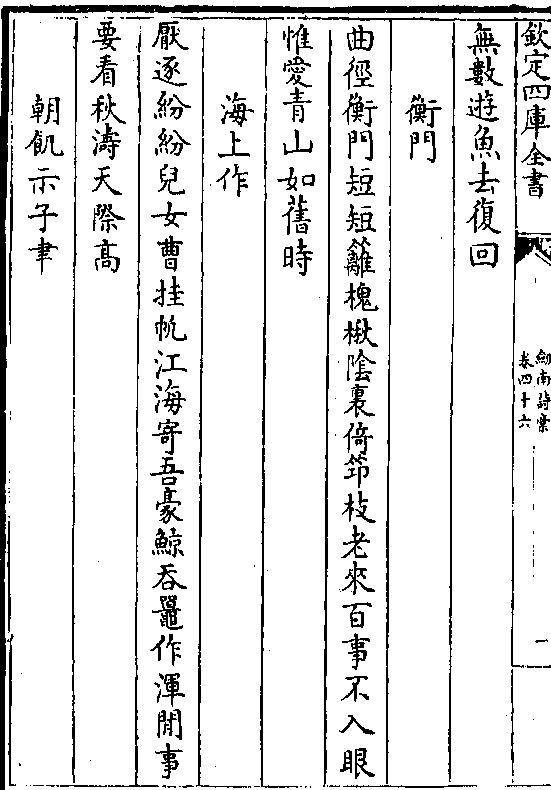 欽定四庫全書
劒南詩稾
卷四十六
一
無數遊魚去復回
衡門
曲徑衡門短短籬槐楸陰裏倚筇枝老來百事不入眼
惟愛青山如舊時
海上作
厭逐紛紛兒女曹挂帆江海寄吾豪鯨吞鼉作渾閒事
要看秋濤天際高
朝飢示子聿